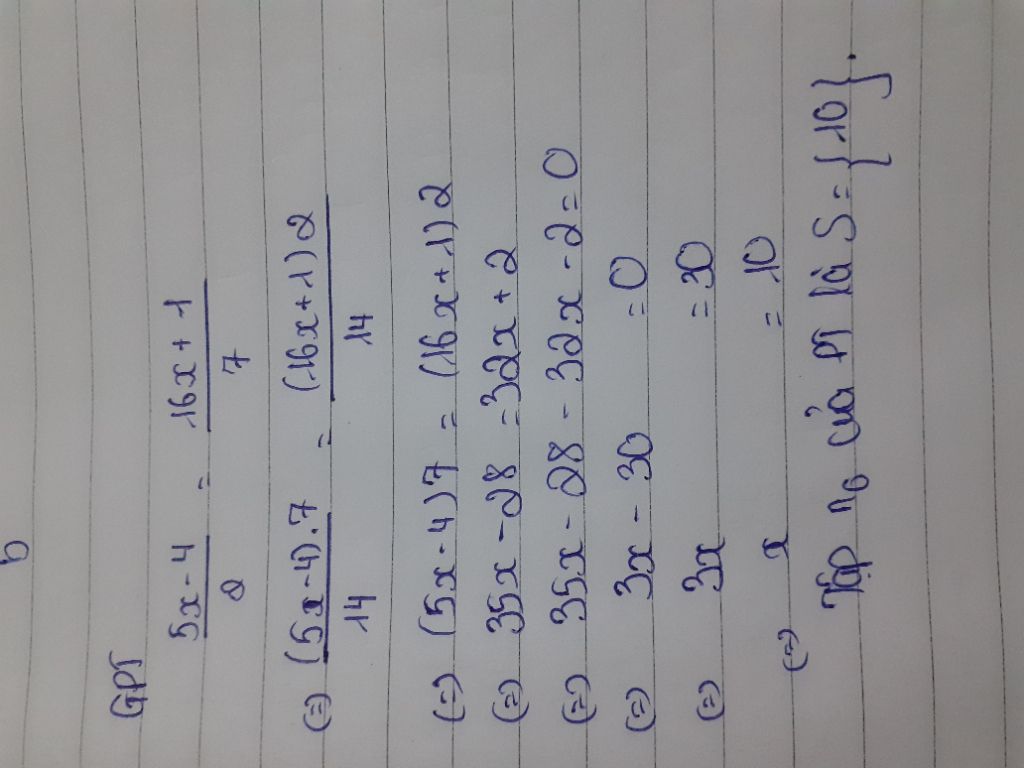 b
GPT
5x - 4 / 2 = 16x + 1 / 7
(=) (5x - 4).7 / 14 = (16x + 1) 2 / 14
(=) (5x - 4) 7 = (16x + 1) 2
(=) 35x - 28 = 32x + 2
(=) 35x - 28 - 32x - 2 = 0
(=) 3x - 30 = 0
(=) 3x = 30
(=) x = 10
Tập no của PT là S = {10}.